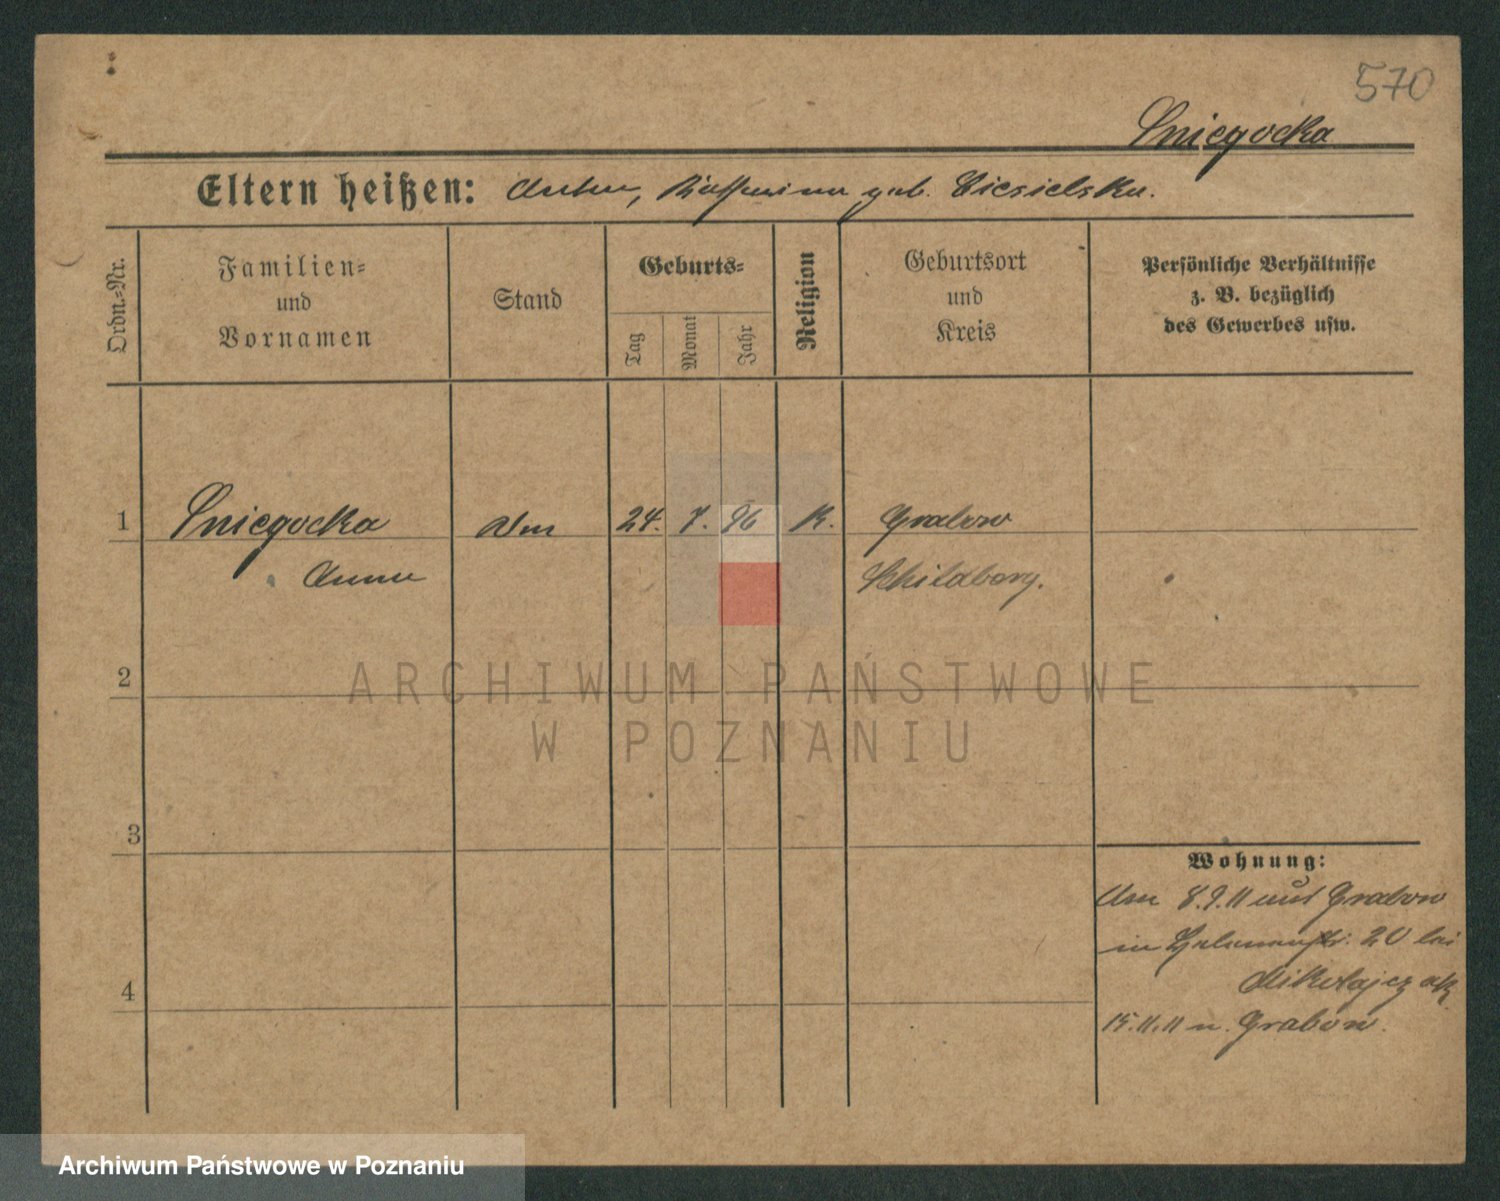 570
Sniegocka
Eltern heißen: geb. Ciesielska.
Ordn.-Nr.
Familien-
und
Vornamen
Stand
Geburts-
Tag
Monat
Jahr
Religion
Geburtsort
und
Kreis
Persönliche Verhältnisse
z. B. bezüglich
des Gewerbes usw.
1 Sniegocka 24. 7. 96 K. Grabow
Anna Schildberg.
2
3
4
Wohnung:
Am 8.9.11 aus Grabow
in 20 bei
Mikolajczak
15.11.11 n. Grabow.
ARCHIWUM PAŃSTWOWE
W POZNANIU
Archiwum Państwowe w Poznaniu